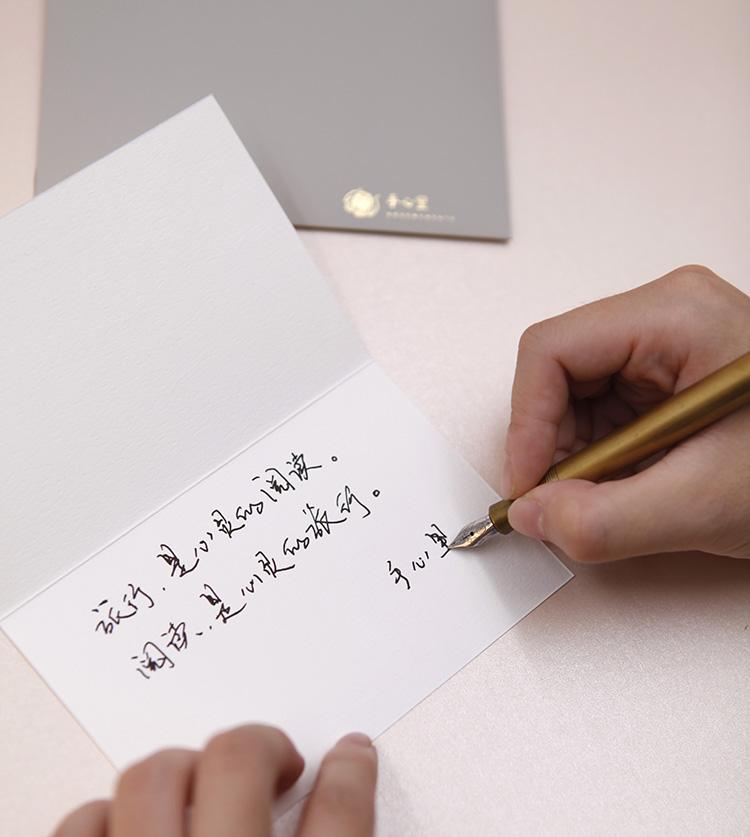 手心里
旅行,是心灵的阅读。
阅读,是心灵的旅行。
手心里